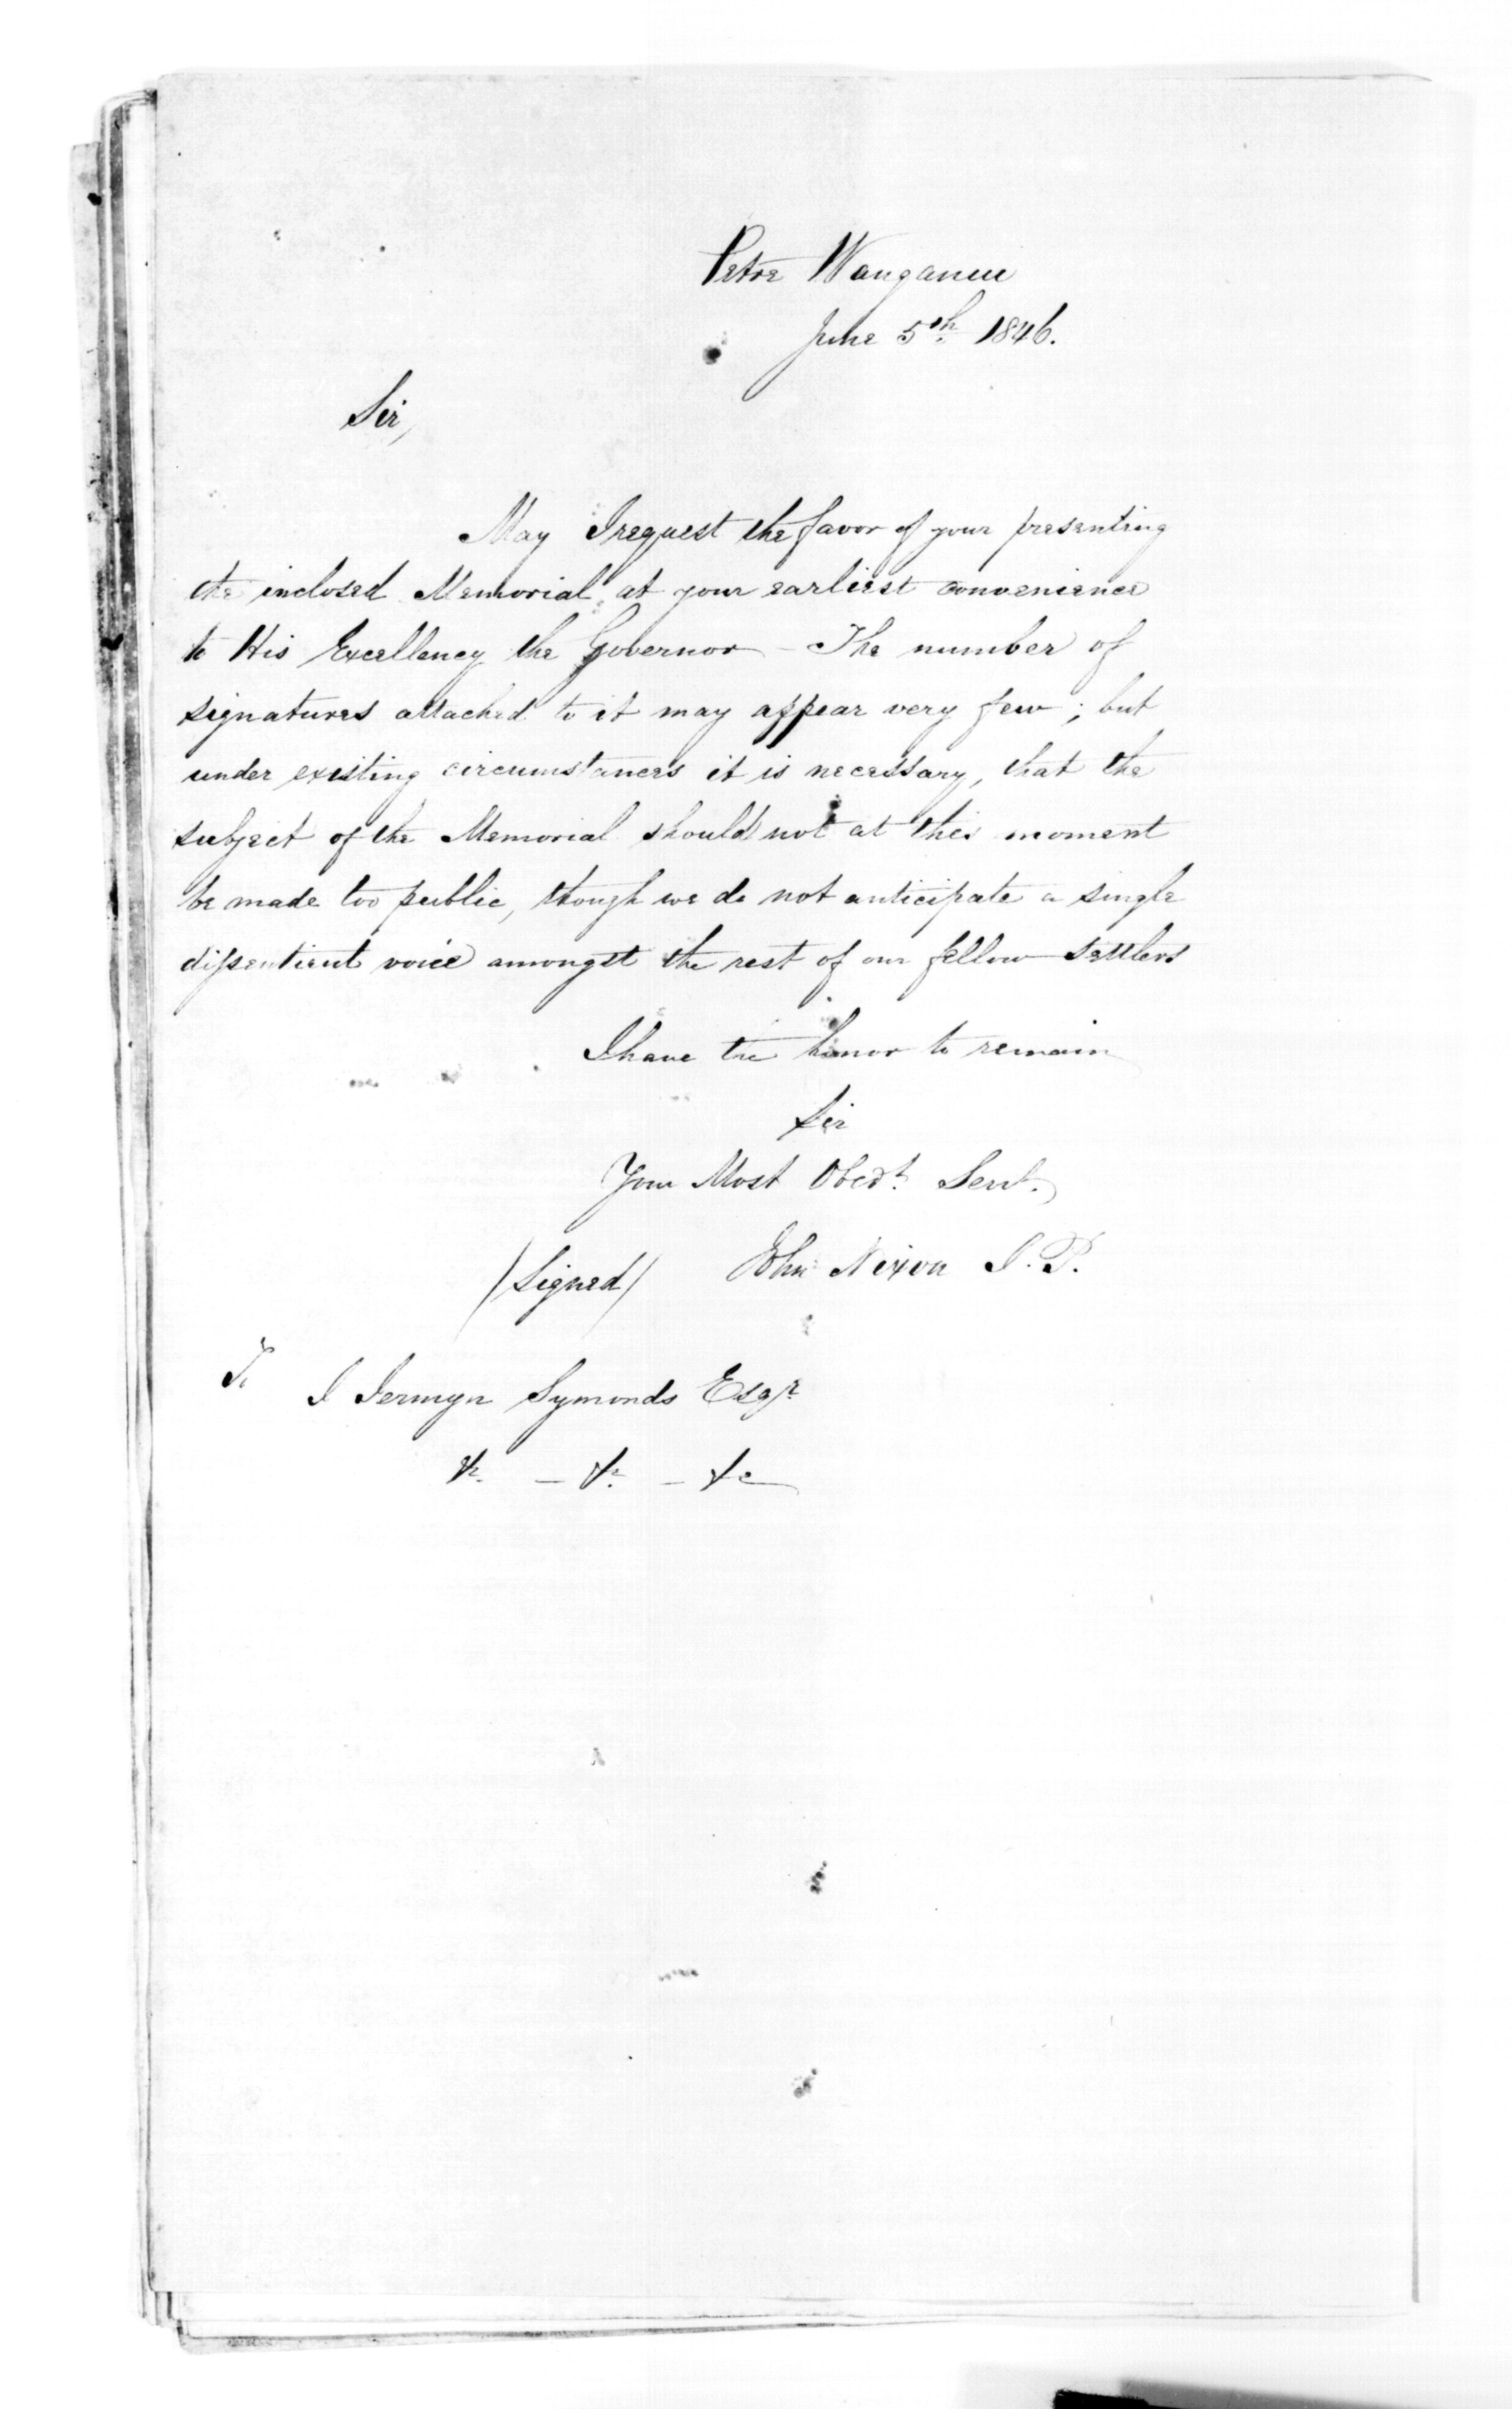 Petre Wanganui
June 5th 1846.
Sir,
May I request the favor of your presenting
the inclosed Memorial at your earliest convenience
to His Excellency the Governor – The number of
signatures attached to it may appear very few ; but
under existing circumstances it is necessary, that the
subject of the Memorial should not at this moment
be made too public, though we do not anticipate a single
dissentient voice amongst the rest of our fellow settlers
I have the honor to remain
Sir
Your Most Obedt. Servt.
/Signed/ John Nixon J.P.
To J Jermyn Symonds Esqr
&c. – &c. – &c